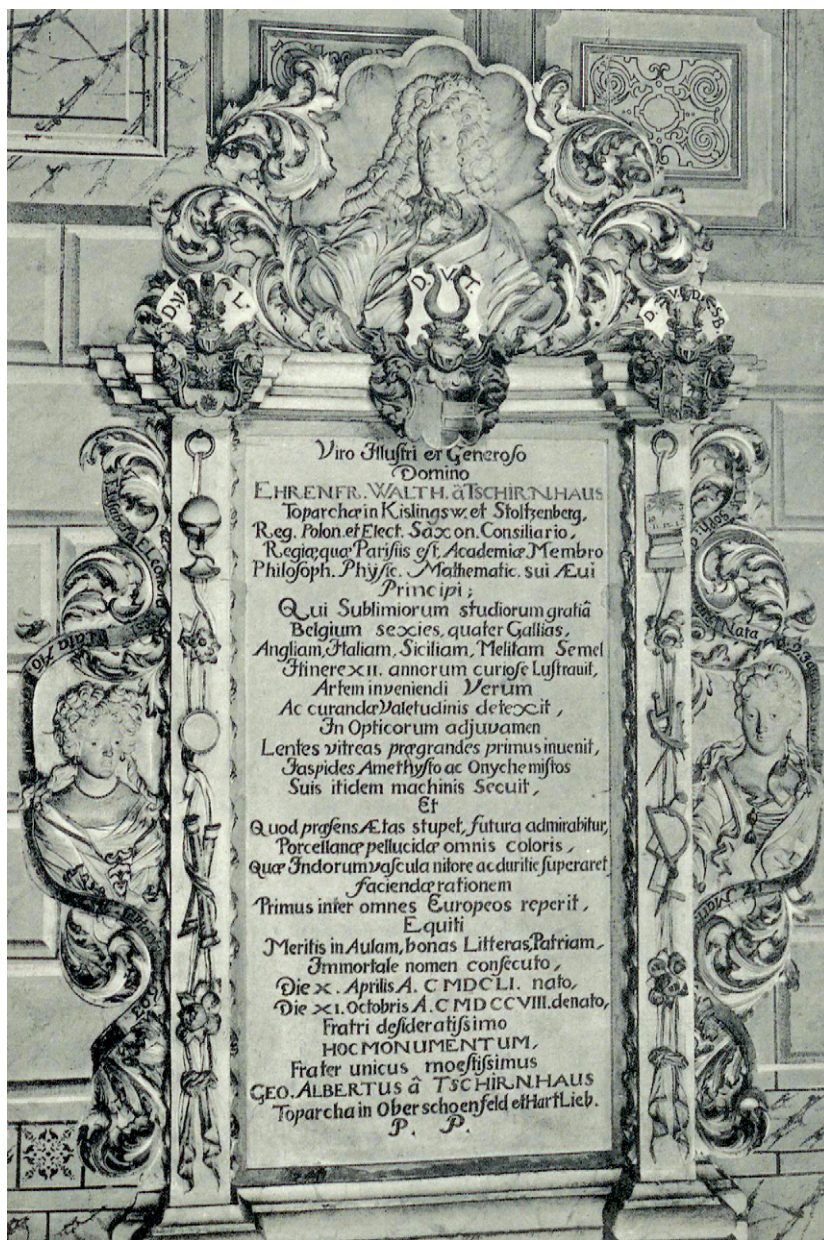 D. V. L.
D. V. T.
D. V. E. D. S. B.
Viro Illuſtri et Generoſo
Domino
EHRENFR. WALTH. â TSCHIRNHAUS
Toparchæ in Kislingsw. et Stoltzenberg,
Reg. Polon. et Elect. Saxon. Consiliario,
Regiæ, quæ Pariſiis eſt, Academiæ Membro
Philoſoph. Phyſic. Mathematic. sui Æui
Principi;
Qui Sublimiorum studiorum gratiâ
Belgium sexies, quater Gallias,
Angliam, Italiam, Siciliam, Melitam Semel
Itinere XII. annorum curioſe Luſtrauit,
Artem inveniendi Verum
Ac curandæ Valetudinis detexit,
In Opticorum adjuvamen
Lentes vitreas prægrandes primus inuenit,
Jaspides Amethyſto ac Onyche miſtos
Suis itidem machinis Secuit,
Et
Quod præſens Ætas stupet, futura admirabitur,
Porcellanæ pellucidæ omnis coloris,
Quæ Indorum vaſcula nitore ac duritie ſuperaret,
faciendæ rationem
Primus inter omnes Europeos reperit,
Equiti
Meritis in Aulam, bonas Litteras, Patriam,
Immortale nomen conſecuto,
Die X. Aprilis A. C MDCLI. nato,
Die XI. Octobris A. C MDCCVIII. denato,
Fratri deſideratiſſimo
HOC MONUMENTUM,
Frater unicus moeſtiſſimus
GEO. ALBERTUS â TSCHIRNHAUS
Toparcha in Oberschoenfeld et HartLieb.
P. P.